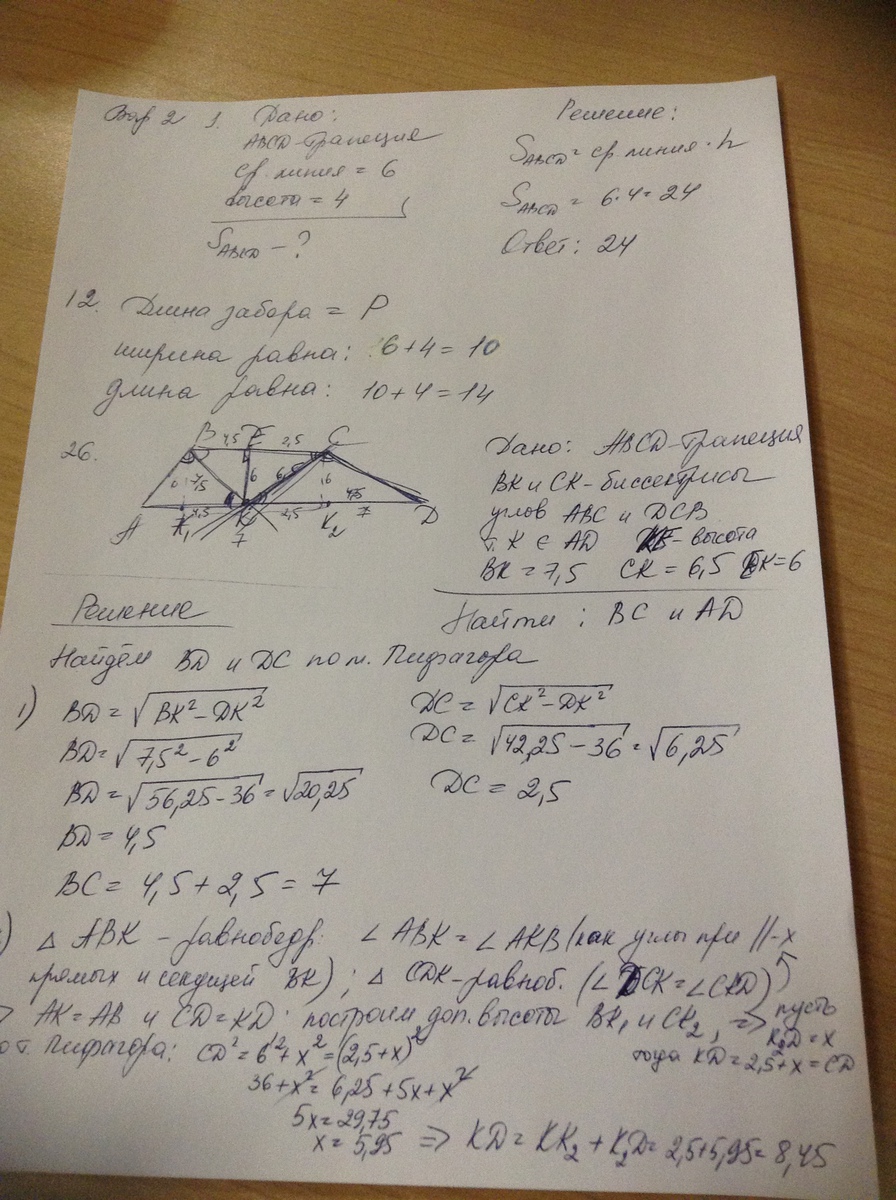 Вар 2 1. Дано:
ABCD - трапеция
ср. линия = 6
высота = 4
S ABCD - ?
Решение:
S ABCD = ср. линия · h
S ABCD = 6·4 = 24
Ответ: 24
12. Длина забора = P
ширина равна: 6+4=10
длина равна: 10+4=14
26.
B 4,5 E 2,5 C
6 7,5 6 6,5 6
A K₁ 4,5 K 2,5 K₂ 7 D
7
Дано: ABCD - трапеция
BK и CK - биссектрисы
углов ABC и DCB
т. K ∈ AD KE - высота
BK = 7,5 CK = 6,5 EK = 6
Найти: BC и AD
Решение
Найдём BD и DC по т. Пифагора
1) BD = √BK² - DK²
BD = √7,5² - 6²
BD = √56,25 - 36 = √20,25
BD = 4,5
BC = 4,5 + 2,5 = 7
DC = √CK² - DK²
DC = √42,25 - 36 = √6,25
DC = 2,5
) △ ABK - равнобедр. ∠ ABK = ∠ AKB (как углы при ||-х
прямых и секущей BK); △ CDK - равноб. (∠ DCK = ∠ CKD)
AK = AB и CD = KD построим доп. высоты BK₁ и CK₂, => пусть
K₂D = x
тогда KD = 2,5 + x = CD
по т. Пифагора: CD² = 6² + x² = (2,5+x)²
36 + x² = 6,25 + 5x + x²
5x = 29,75
x = 5,95 => KD = KK₂ + K₂D = 2,5 + 5,95 = 8,45